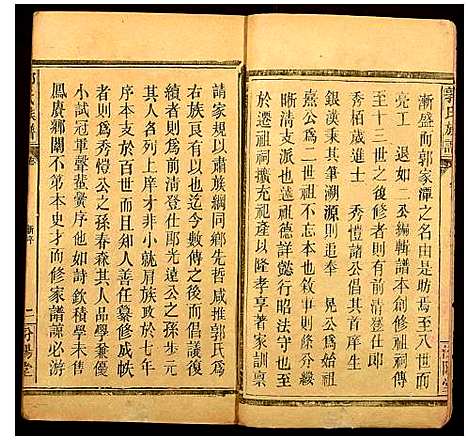 漸盛而郭家潭之名由是昉焉至八世而
亮工 退如二公編輯譜本創修祖祠傳
至十三世之後修者則有前清登仕郎
秀栢歲進士 秀愷諸公倡其庠生
銀漢秉其筆溯源則追奉 晃公為始祖
熹公為二世祖不忘本也敘事則條分縷
晰清支派也述祖德詳懿行昭法守也至
於遷祖祠擴充祖產以隆孝享著家訓禀
請家規以肅族綱同鄉先哲咸推郭氏為
右族良有以也迄今數傳之後而倡議復
續者則為前清登仕郎光遠公之孫步元
其人名列上庠才非小就肩族政於七年
序本支於百世而且知人善任纂修成帙
者則為秀愷公之孫春森其人品學兼優
小試冠軍聲蜚黌序他如詩欽積學未售
鳳賡鄉闈不第本史才而修家譜諒必游
郭氏族譜
新序
二
汾陽堂
郭氏族譜
汾陽堂